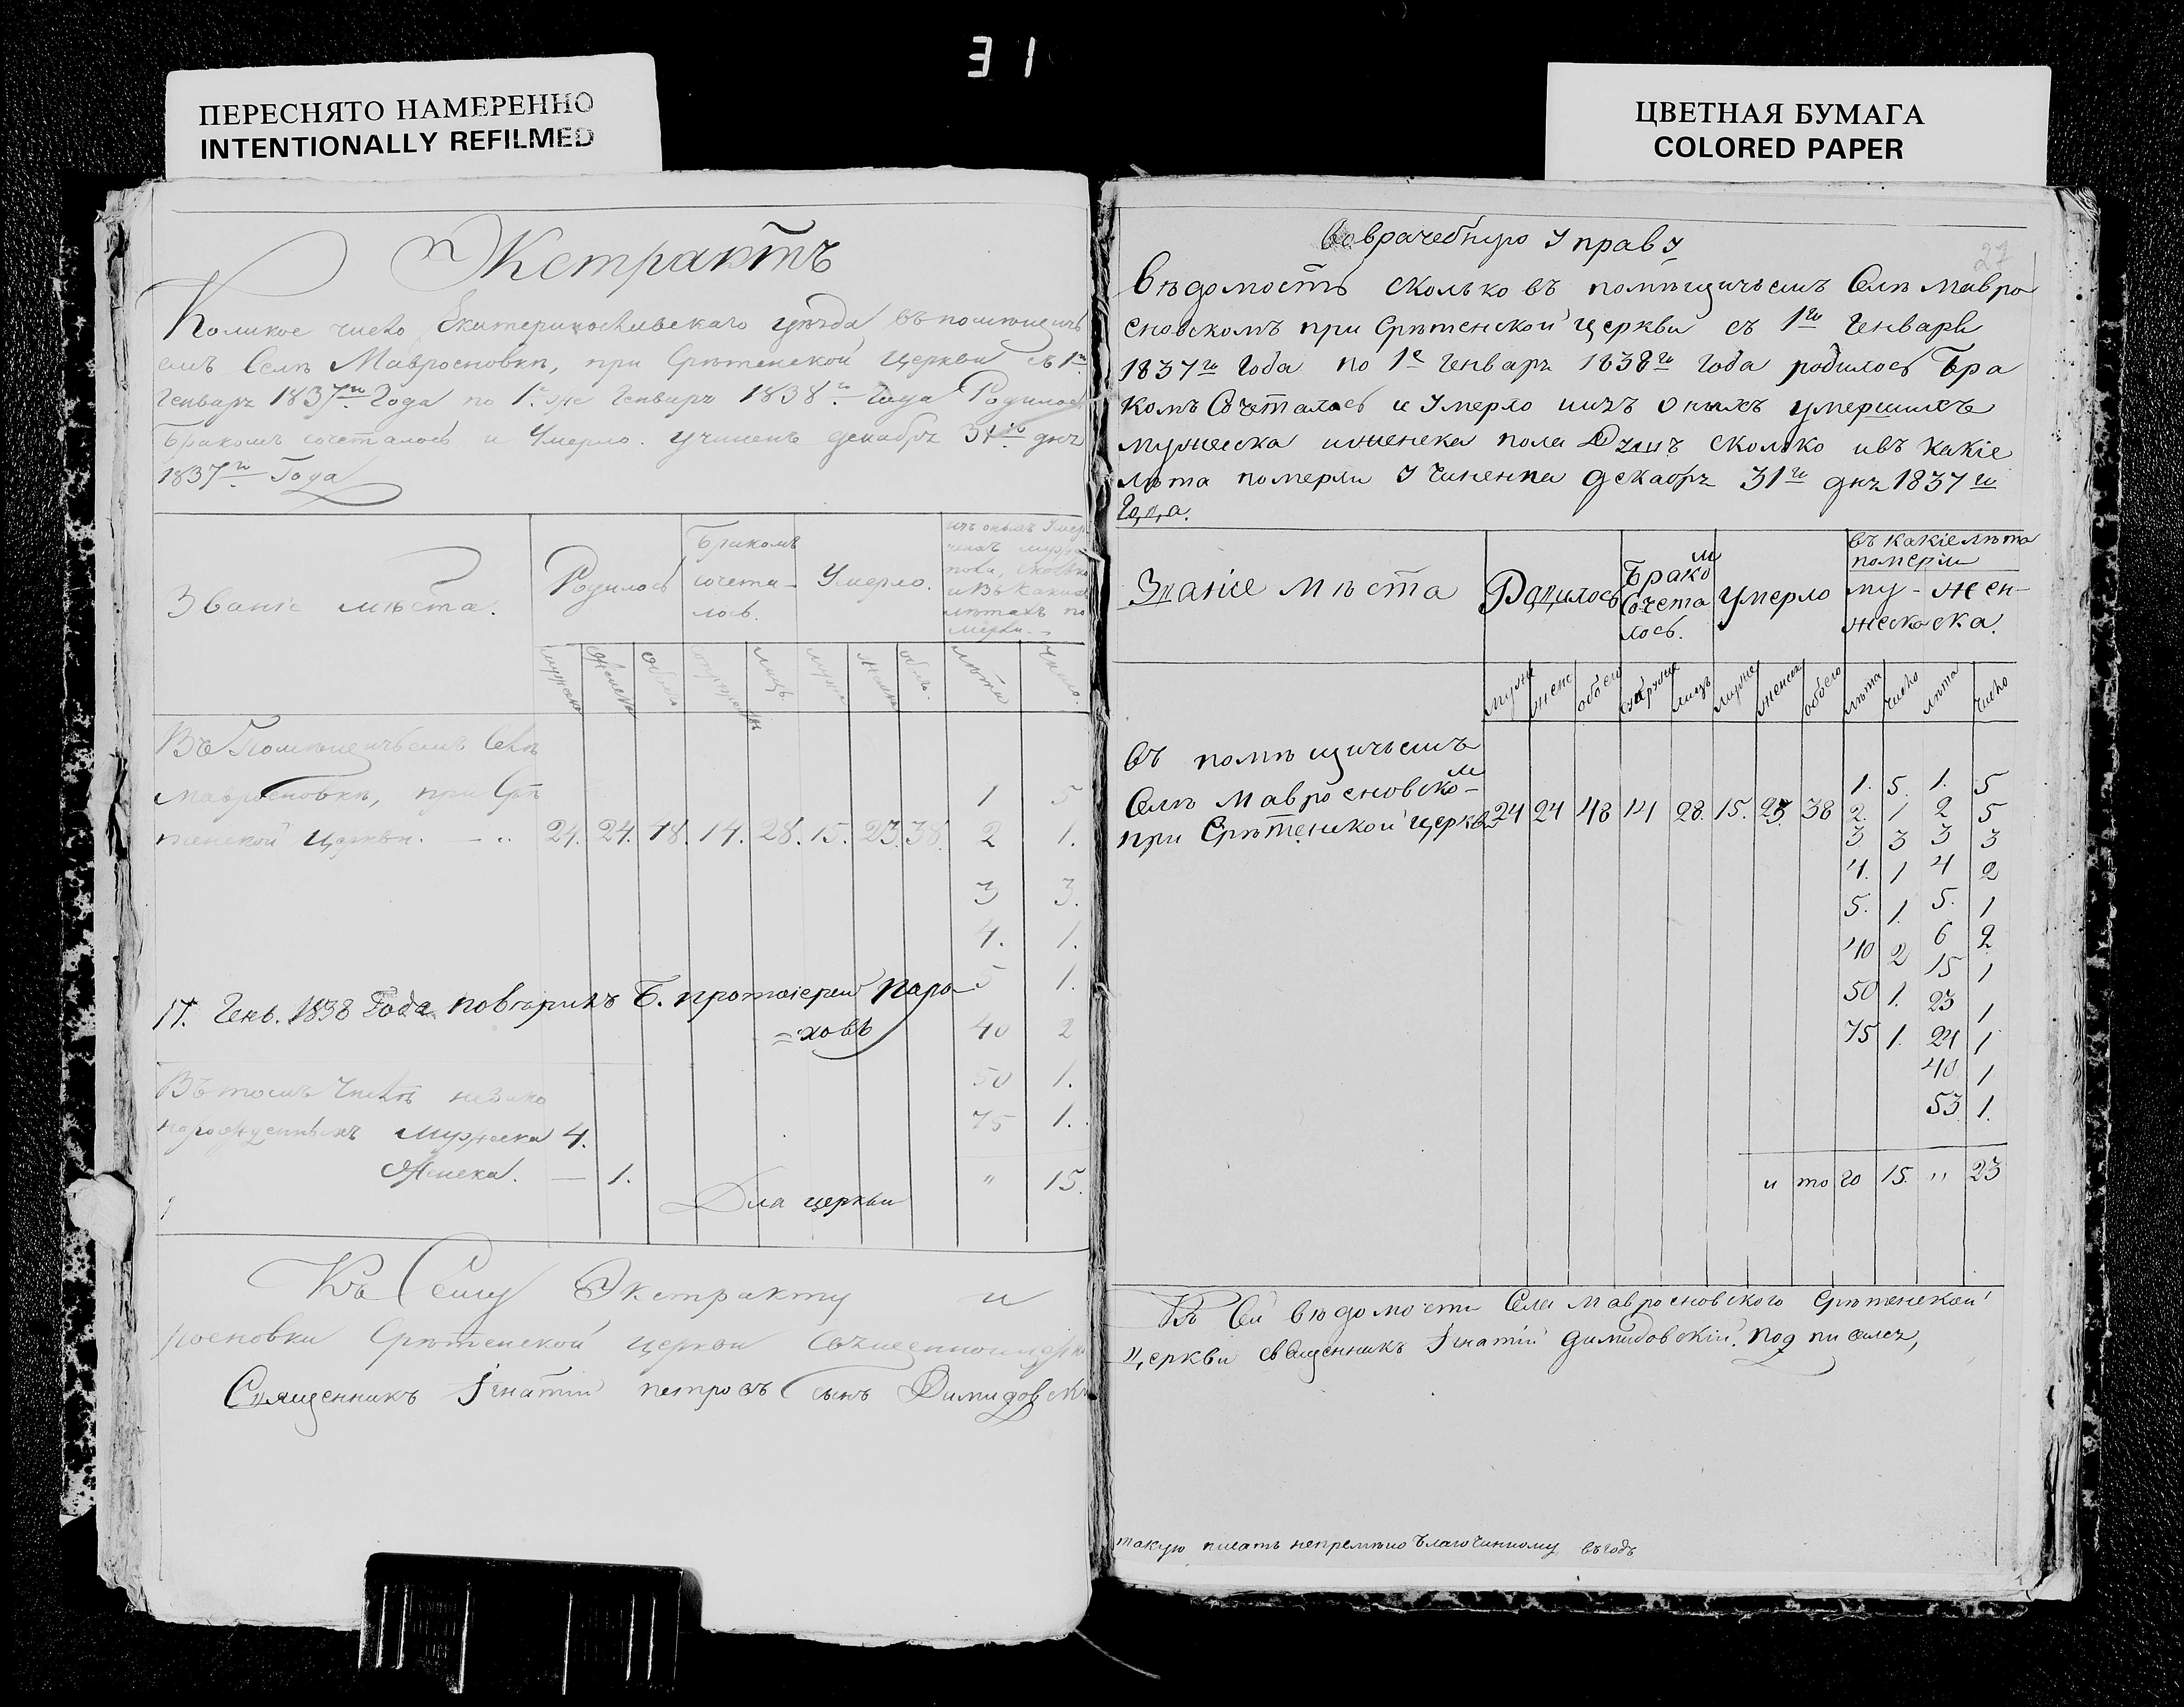 31
ПЕРЕСНЯТО НАМЕРЕННО
INTENTIONALLY REFILMED
ЦВЕТНАЯ БУМАГА
COLORED PAPER
Экстрактъ
Коликое число Екатеринославскаго уѣзда въ помѣщичь
емъ Селѣ Мавросновкѣ, при Срѣтенской церкви съ 1го
Генваря 1837го Года по 1е же Генваря 1838го Года Родилось
Бракомъ сочеталось и Умерло. учиненъ декабря 31го дня
1837го Года
Званіе мѣста.
Родилось
Бракомъ
сочета-
лось.
Умерло.
изъ оныхъ Умер
пола, сколько
и въ какихъ
лѣтахъ по
мерли.
мужеска
женска
обоего
лицъ
муже
женска
обоего
лѣта
число.
Въ Помѣщичьемъ Селѣ
Мавросновкѣ, при Срѣ
тенской Церкви. 24. 24. 48. 14. 28. 15. 23. 38.
1 5
2 1.
3 3.
4. 1.
5 1.
40 2
50 1.
75 1.
" 15.
17. Генв. 1838 Года повѣрилъ Б. протоіерей Паро
=ховъ
Въ томъ числѣ незако
норожденныхъ мужеска 4.
Женска. — 1.
Для церкви
Къ Сему Экстракту и
росновки Срѣтенской церкви
Священникъ Игнатій петровъ сынъ Димидовскі
27
Во врачебную Управу
Вѣдомость сколько въ помѣщичьемъ Селѣ Мавро
сновскомъ при Срѣтенской церкви съ 1го Генваря
1837го Года по 1е Генваря 1838го Года родилось Бра
комъ Сочеталось и Умерло изъ оныхъ умершихъ
мужеска и женска пола Душъ сколько и въ какіе
лѣта померли Учиненна декабря 31го дня 1837го
Года.
Званіе мѣста
Родилось
Бракомъ
Сочета
лось.
Умерло
въ какіе лѣта
померли
му-
жеска
жен-
ска.
муже
женс
обоего
супруже
лицъ
муже
женска
обоего
лѣта
число
лѣта
число
въ помѣщичьемъ
Селѣ Мавросновском
при Срѣтенской церкв 24 24 48 14 28. 15. 23 38
1. 5. 1. 5
2. 1 2 5
3 3 3 3
4. 1 4 2
5. 1. 5. 1
40 2 6 2
50 1. 15 1
75 1. 23 1
24 1
40 1
53. 1.
итого 15. " 23
Къ Сей вѣдомости Села Мавросновского Срѣтенской
церкви священникъ Игнатій Димидовскій подписался,
такую писать непремѣнно благочинному въ годъ